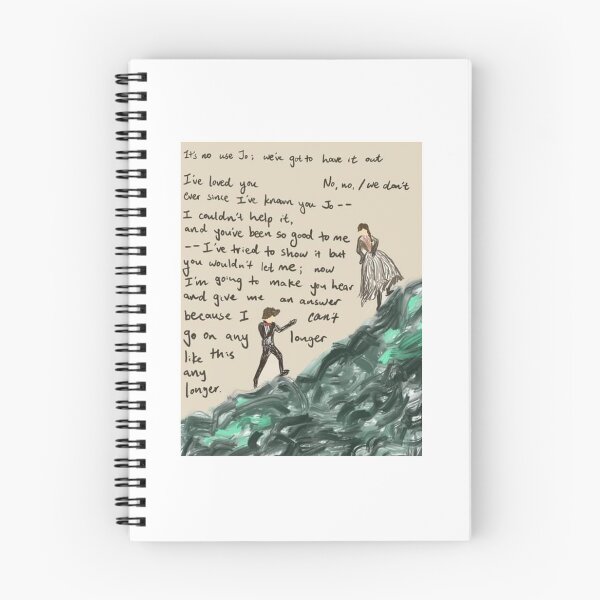 It's no use Jo; we've got to have it out
I've loved you No, no, / we don't
ever since I've known you Jo --
I couldn't help it,
and you've been so good to me
-- I've tried to show it but
you wouldn't let me; now
I'm going to make you hear
and give me an answer
because I can't
go on any longer
like this
any
longer.